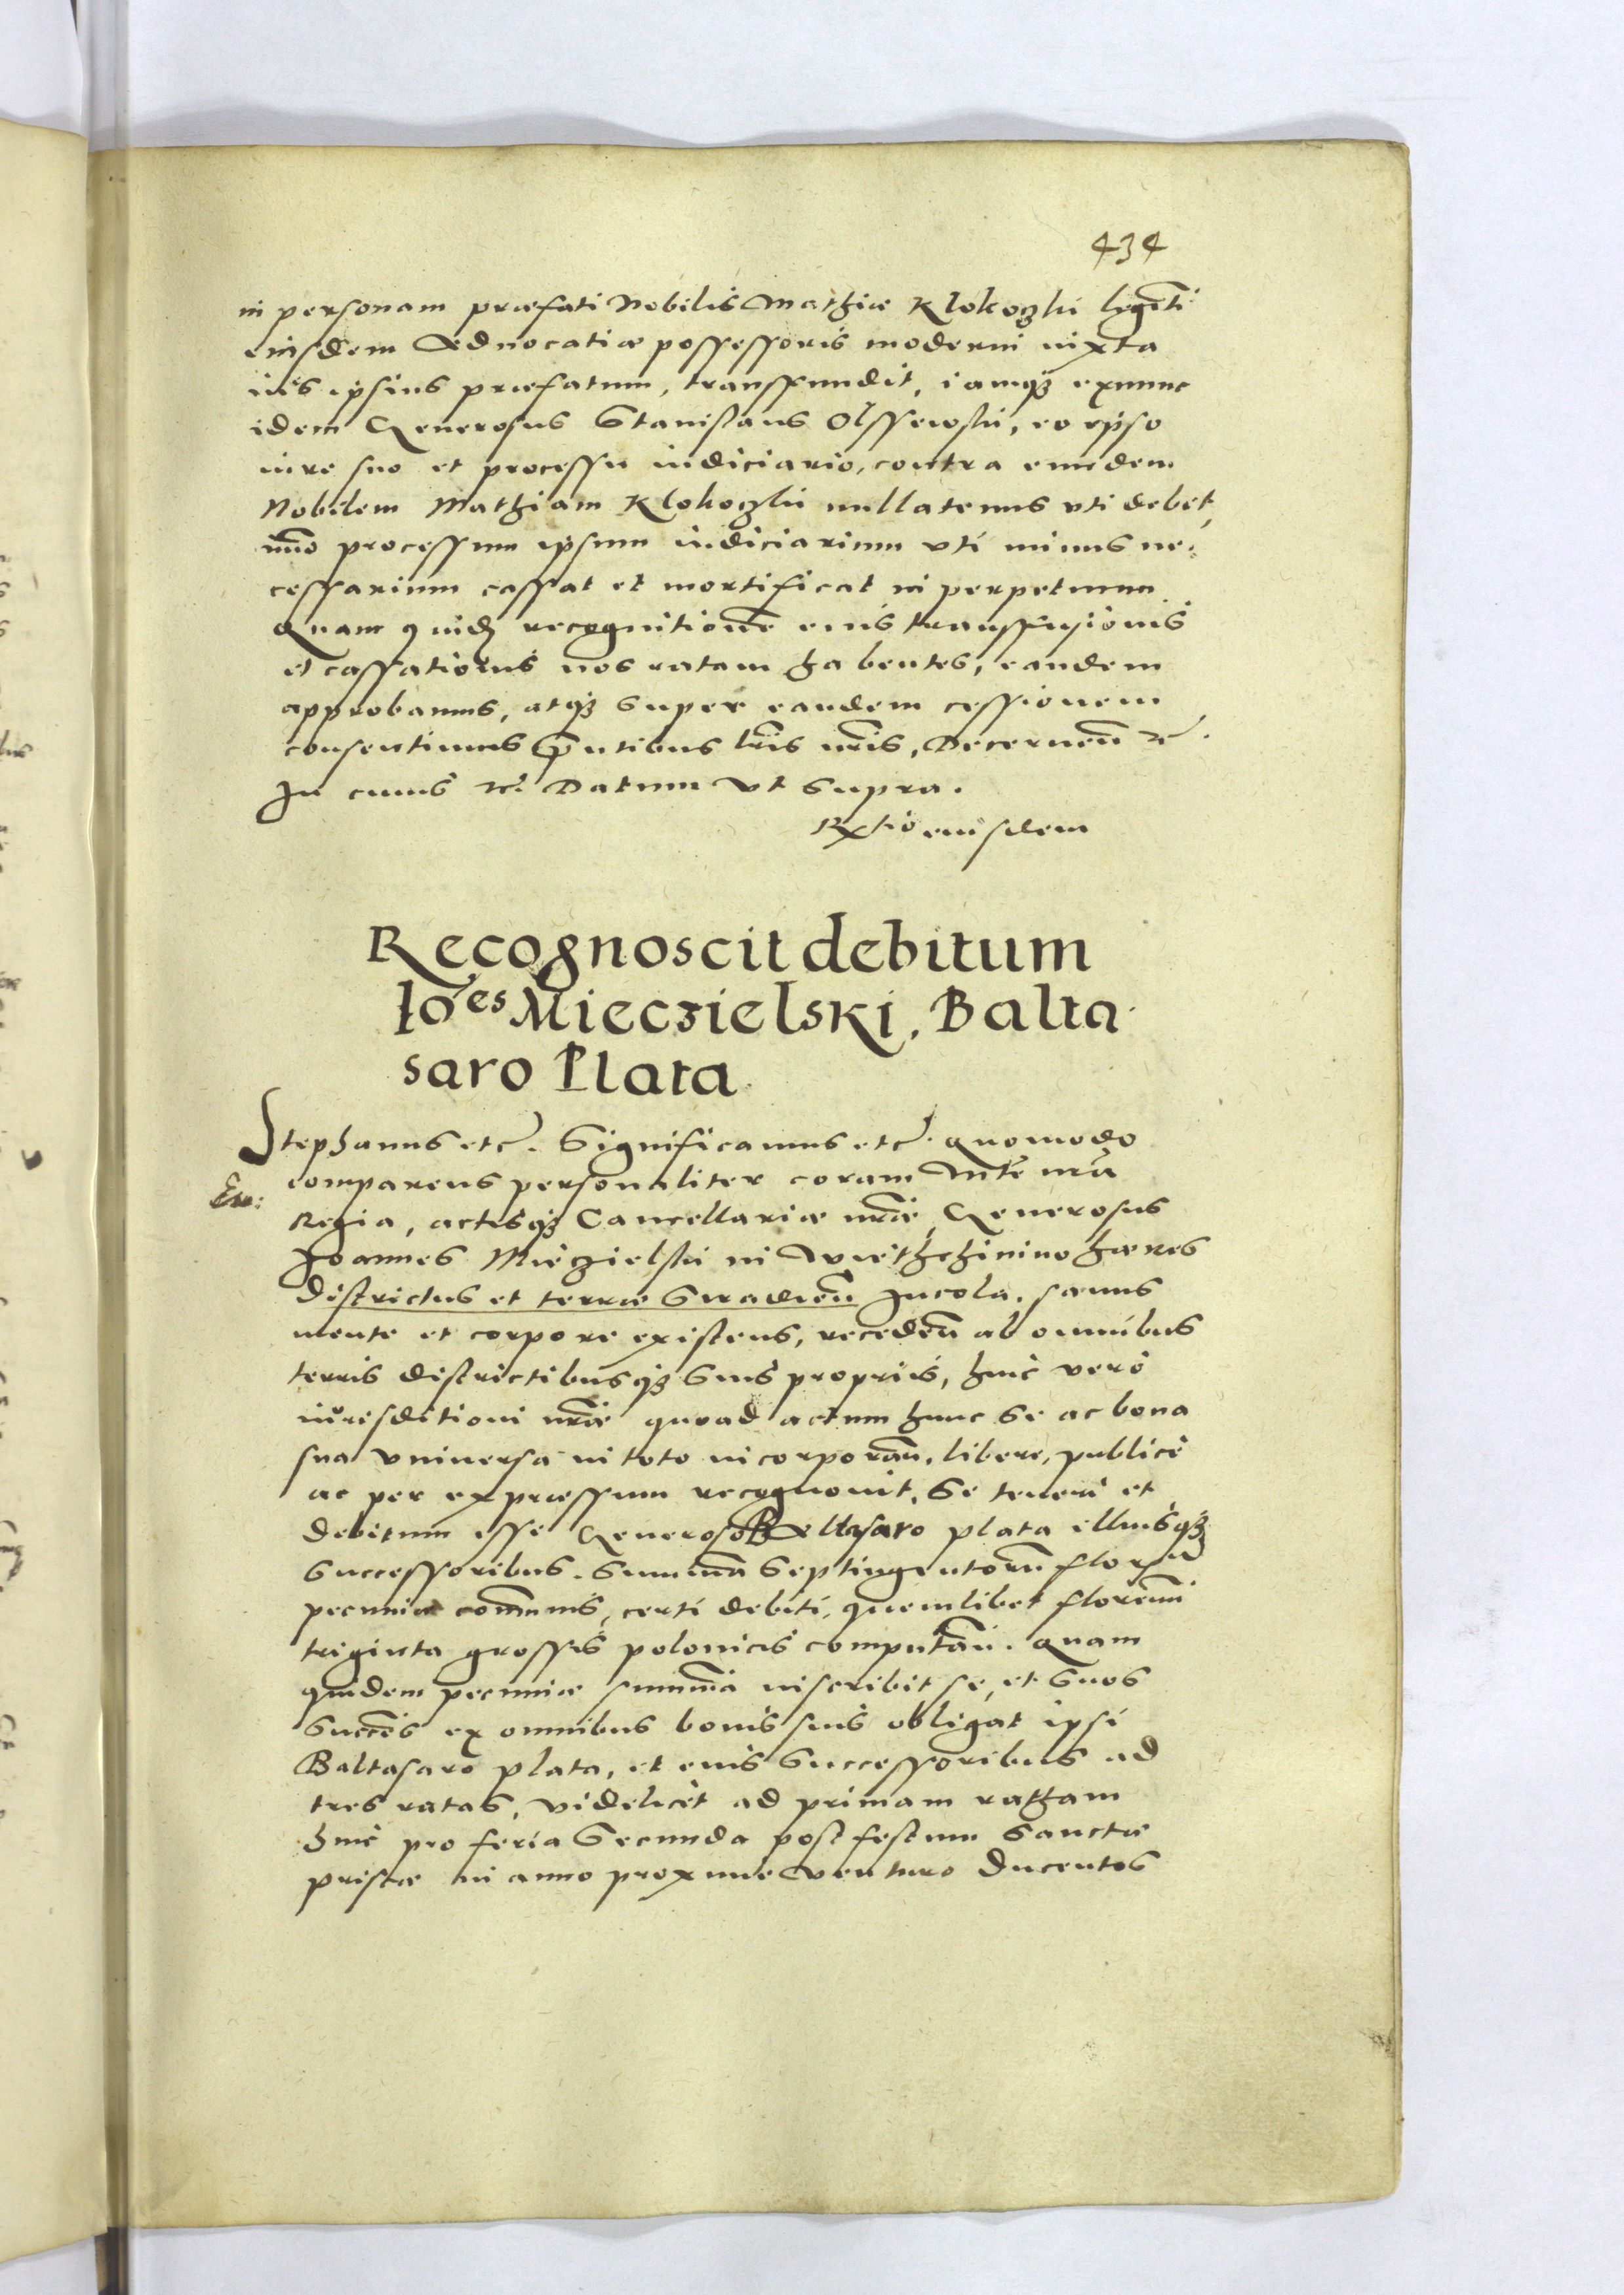 434
in personam præfati Nobilis Mathiæ Klokoczki legitti
eiusdem Aduocatiæ possessoris moderni iuxta
ius ipsius præfatum, transfundit, iamqз exnunc
idem Generosus Stanislaus Olssewski, eo ipso
iure suo et processu iudiciario, contra eundem
Nobilem Mathiam Klokoczki nullatenus vti debet,
im̄o processum ipsum iudiciarium vti minus ne-
cessarium cassat et mortificat in perpetuum.
Quam quidē recognitionē eius transfusionis
et cassationis nos ratam habentes, eandem
approbamus, atqз super eandem cessionem
consentimus pn̄tibus lrīs nrīs, Decernen̄ etc.
In cuius etc. Datum vt supra.
Rxtio eiusdem
Recognoscit debitum
Io͂es Mieczielski, Balta
saro Plata.
Stephanus etc. Significamus etc. quomodo
comparens personaliter coram Mte nrā
Ex:
Regia, actisqз Cancellariæ nrǣ, Generosus
Joannes Mieczielski in hæres
districtus et terræ Siradien̄ Incola. sanus
mente et corpore existens, receden̄ ab omnibus
terris districtibusqз suis propriis, huic vero
iurisditioni nrǣ quoad actum hunc se ac bona
sua vniversa in toto incorporan̄, libere, publice
ac per expræssum recognouit, se teneri et
debitum esse Generoso Baltasaro plata illiusqз
successoribus. Summā septingentorū flor
pecuniæ com̄unis, certi debiti, quemlibet florenū
triginta grossis polonicis computan̄. Quam
quidem pecuniæ sum̄am inscribit se, et suos
succēs ex omnibus bonis suis obligat ipsi
Baltasaro plata, et eius successoribus ad
tres ratas, videlicet ad primam ratham
huic pro feria secunda post festum Sanctæ
priscæ in anno proxime venturo Ducentos